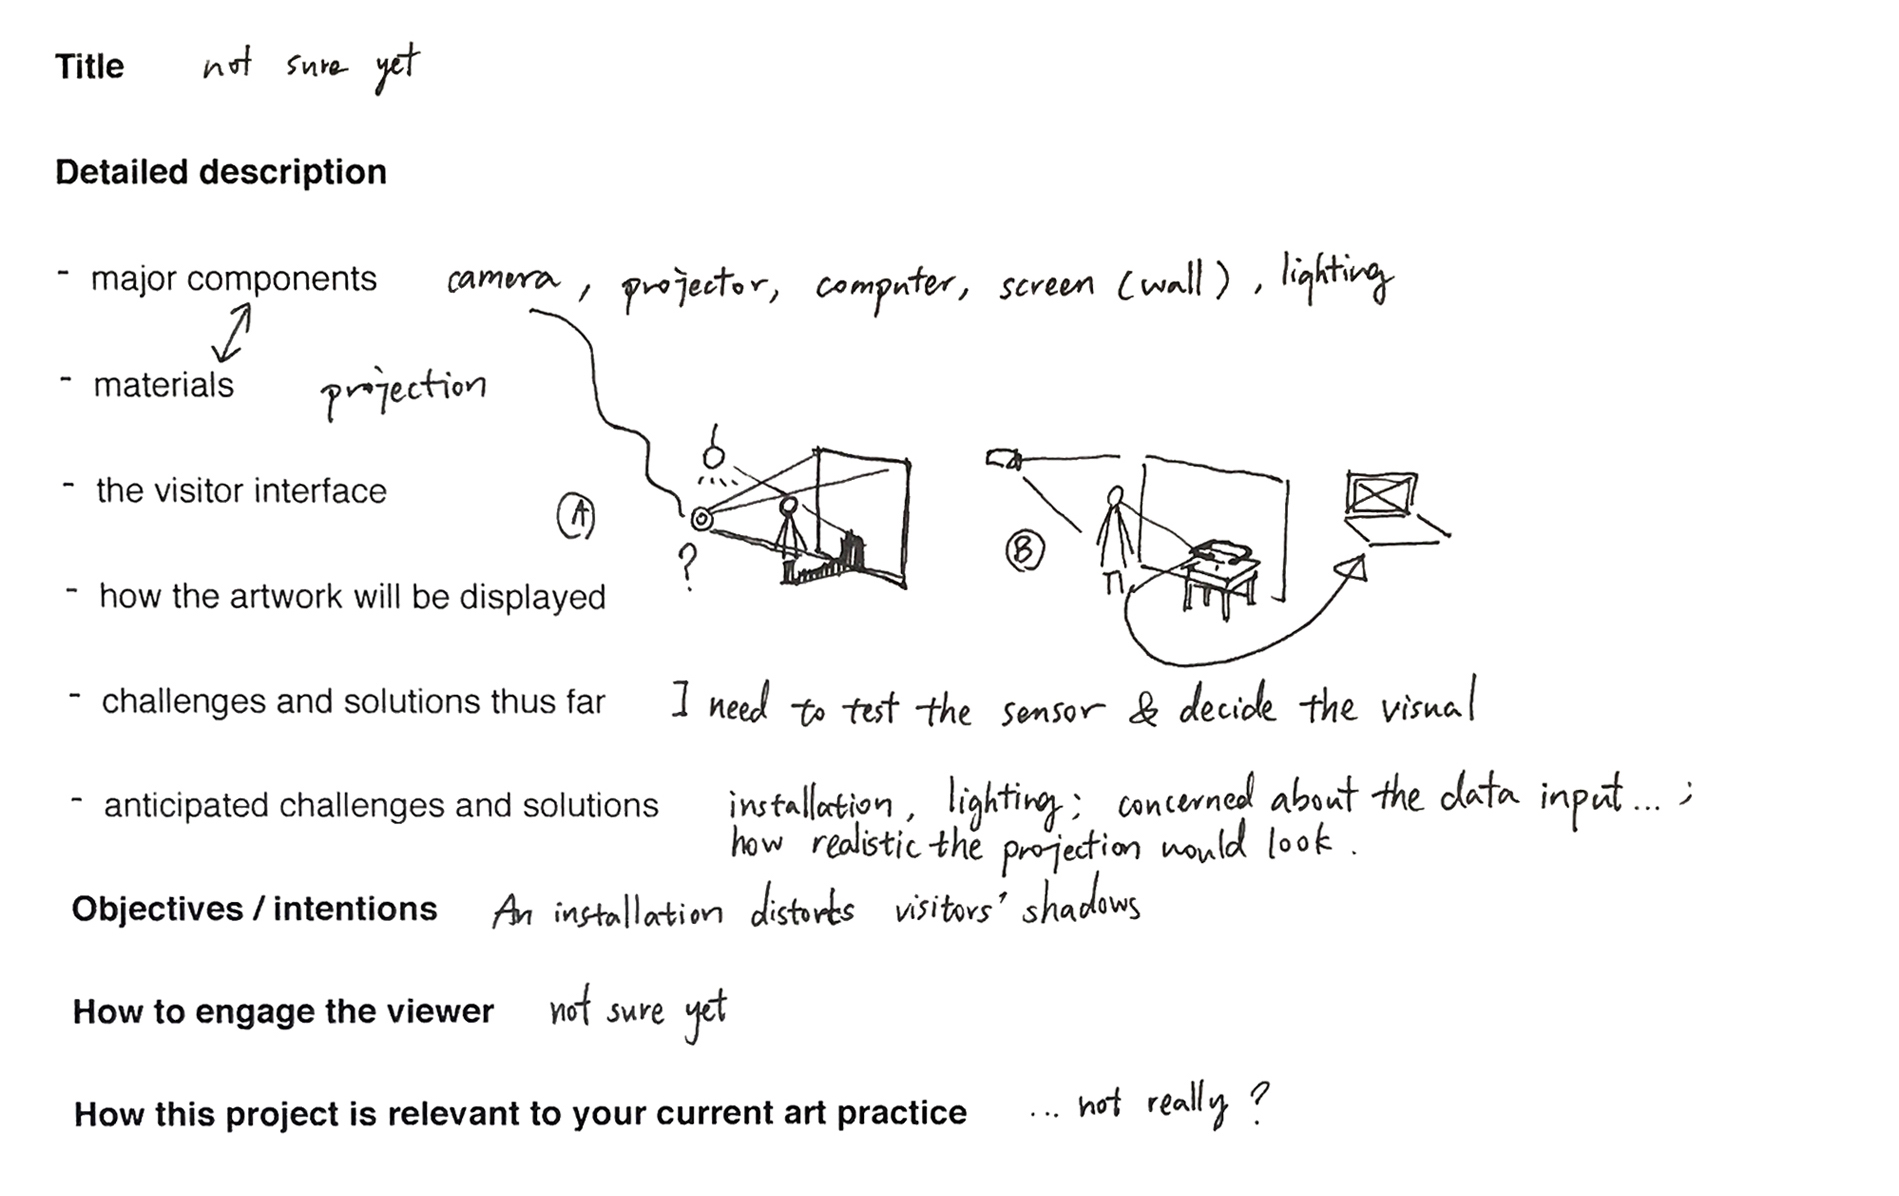 Title not sure yet
Detailed description
- major components camera, projector, computer, screen (wall), lighting
- materials projection
- the visitor interface
A
B
?
- how the artwork will be displayed
- challenges and solutions thus far I need to test the sensor & decide the visual
- anticipated challenges and solutions installation, lighting; concerned about the data input... ;
how realistic the projection would look.
Objectives / intentions An installation distorts visitors' shadows
How to engage the viewer not sure yet
How this project is relevant to your current art practice ... not really ?